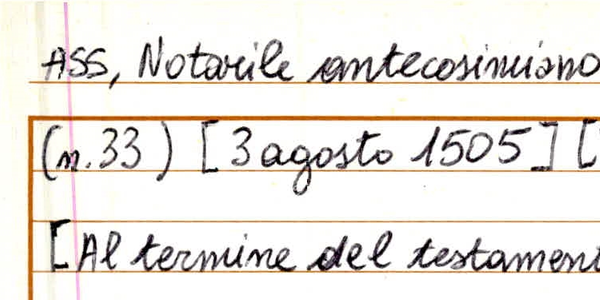 ASS, Notarile antecosimiano
(n.33) [3 agosto 1505] [
[Al termine del testament